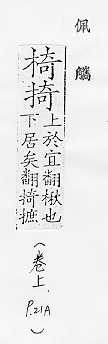 佩觿
椅掎
上於宜翻楸也
下居矣翻掎摭
(卷上, P.21A)